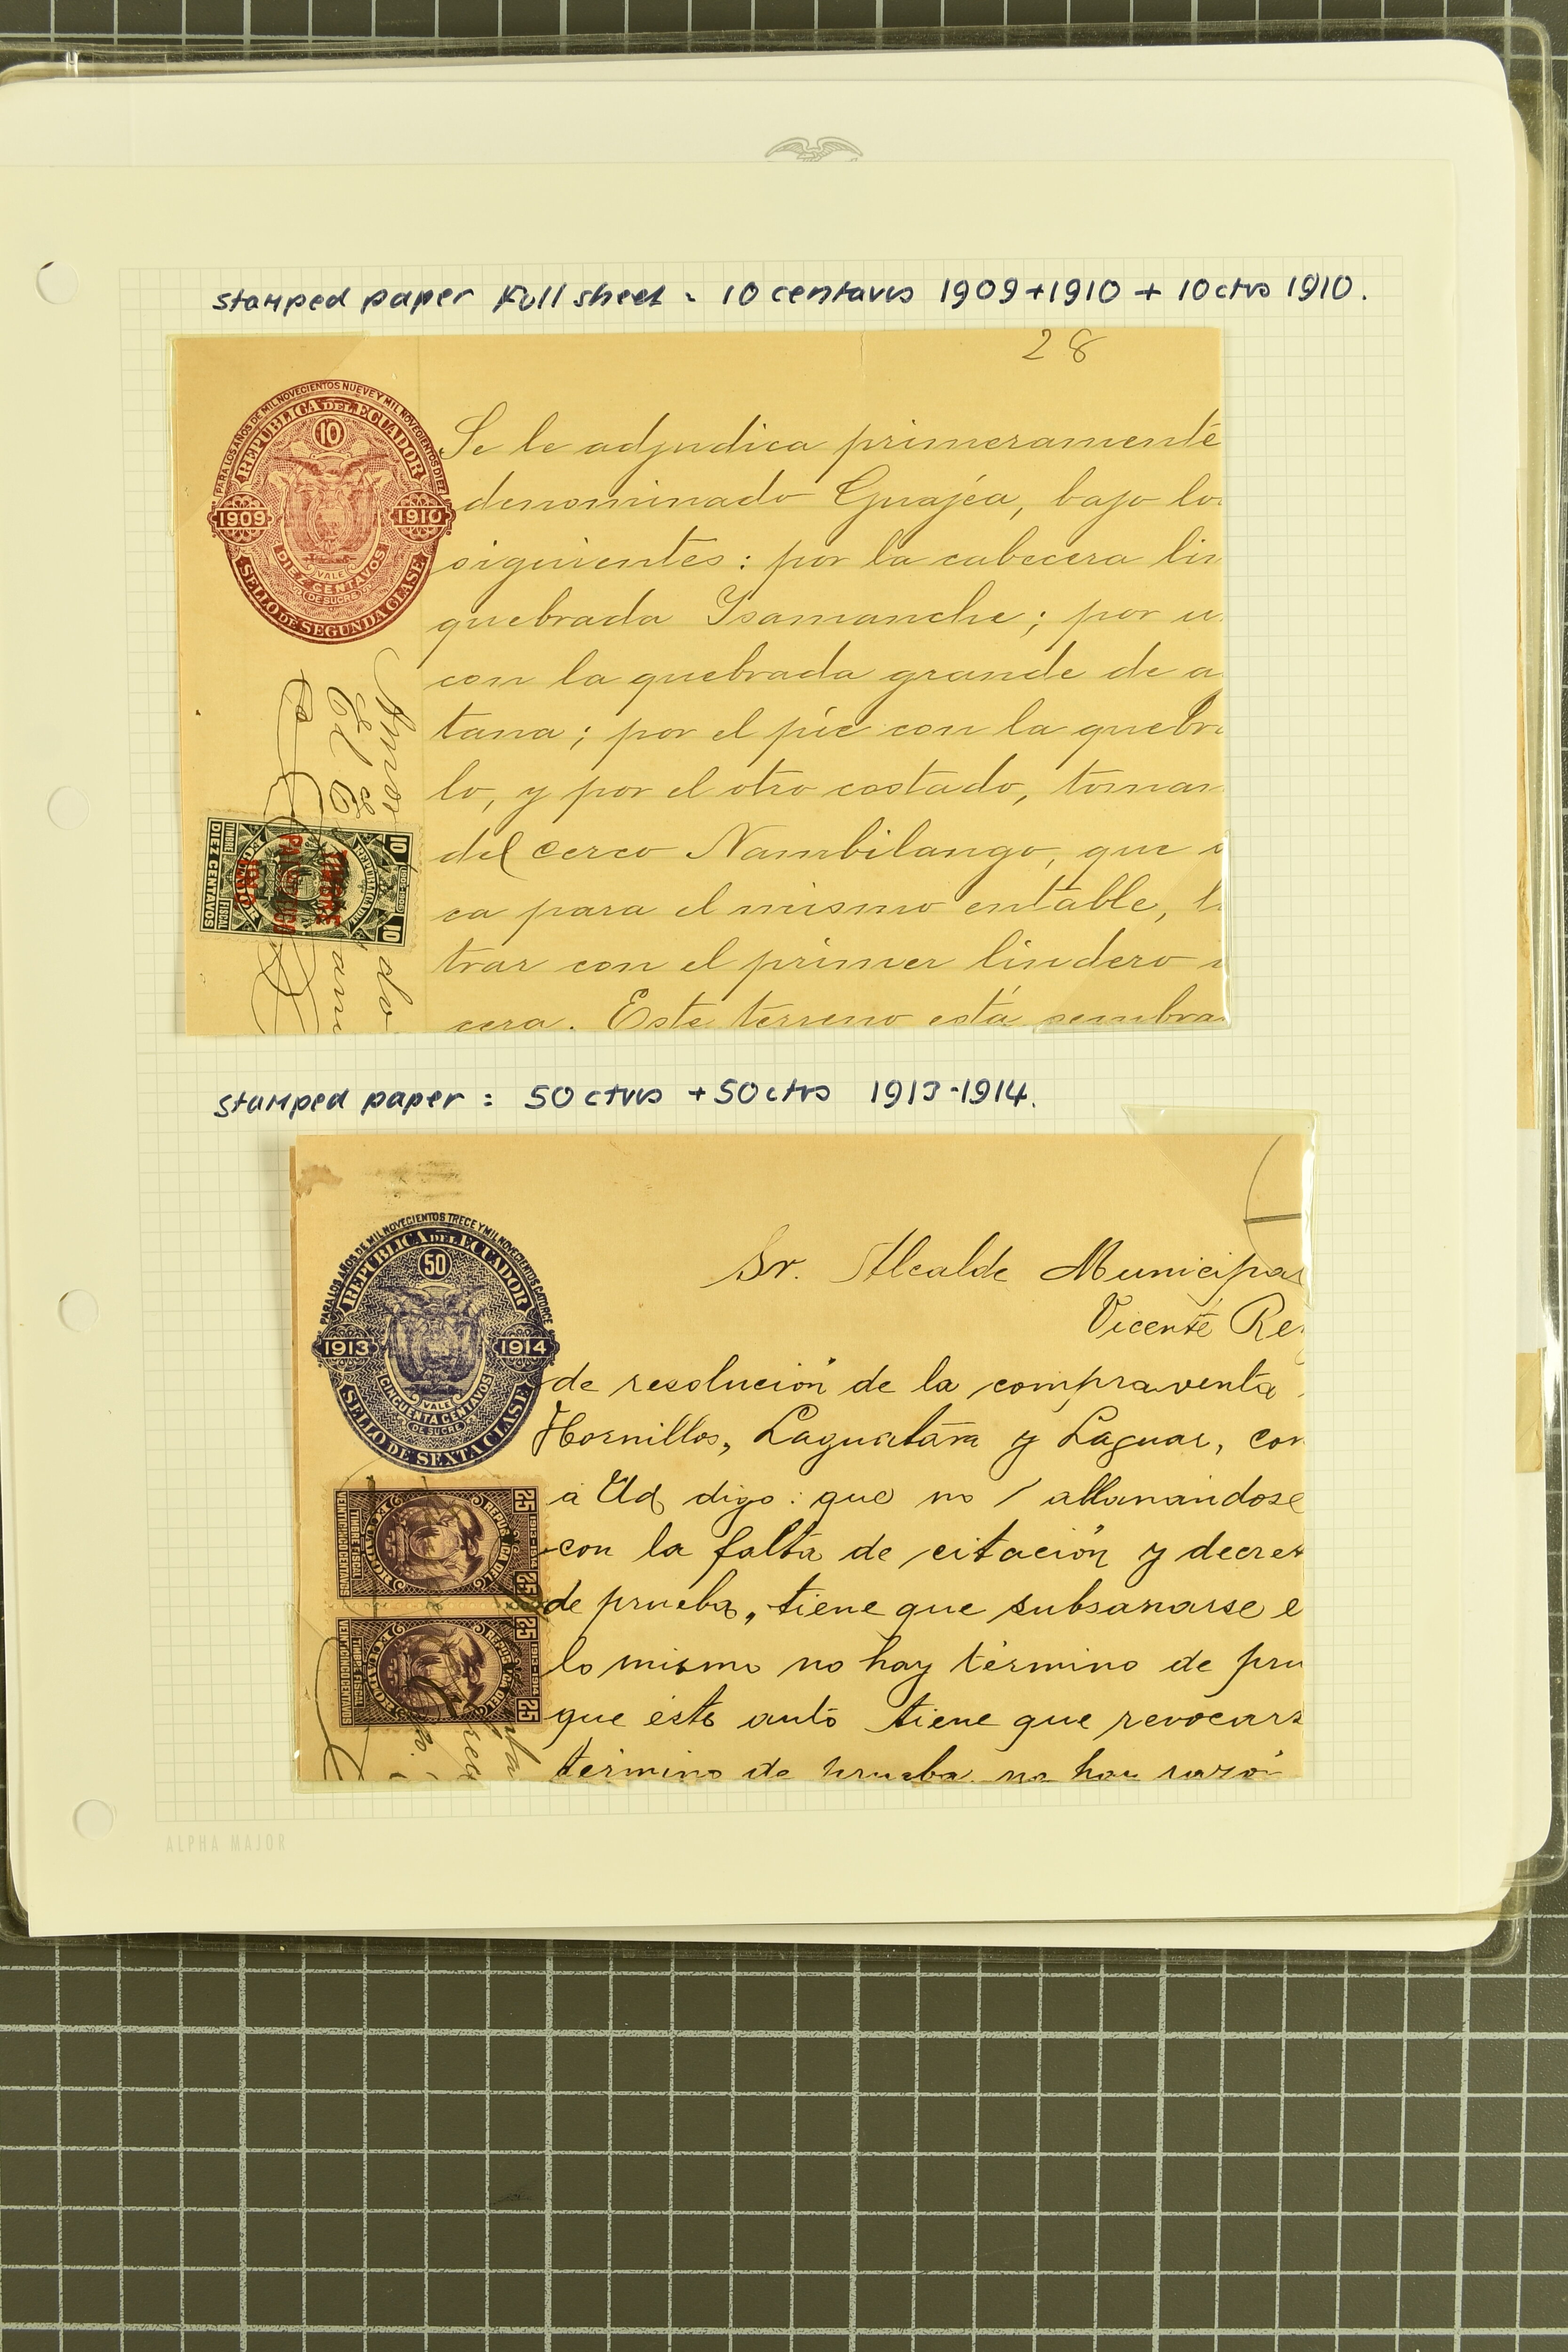 stamped paper Full sheet : 10 centavos 1909+1910 + 10 ctvs 1910.
28
PARA LOS AÑOS DE MIL NOVECIENTOS NUEVE Y MIL NOVECIENTOS DIEZ
REPUBLICA DEL ECUADOR
10
1909 1910
VALE
DIEZ CENTAVOS
DE SUCRE
SELLO DE SEGUNDA CLASE
Se le adjudica primeramente
denominado Guajéa, bajo lo
siguientes: por la cabecera lin
quebrada Ysamanche; por u
con la quebrada grande de a
tana; por el pie con la quebr
lo, y por el otro costado, toman
del cerco Nambilango, que
ca para el mismo entable,
trar con el primer lindero
cera. Este terreno está sembra
10 10
REPUBLICA DEL
ECUADOR
TIMBRE FISCAL
DIEZ CENTAVOS
TIMBRE
stamped paper : 50 ctvos + 50 ctvs 1913-1914.
PARA LOS AÑOS DE MIL NOVECIENTOS TRECE Y MIL NOVECIENTOS CATORCE
REPUBLICA DEL ECUADOR
50
1913 1914
VALE
CINCUENTA CENTAVOS
DE SUCRE
SELLO DE SEXTA CLASE
Sr. Alcalde Municipal
Vicente Rey
de resolución de la compraventa
Hornillos, Laguatána y Laguar, con
á Ud digo: que no / allanándose
con la falta de citación y decret
de prueba, tiene que subsanarse e
lo mismo no hay término de pru
que éste auto tiene que revocars
término de prueba no hay razón
25 25
1913-1914
REPUBLICA DEL
ECUADOR
TIMBRE FISCAL
VEINTICINCO CENTAVOS
25 25
1913-1914
REPUBLICA DEL
ECUADOR
TIMBRE FISCAL
VEINTICINCO CENTAVOS
ALPHA MAJOR